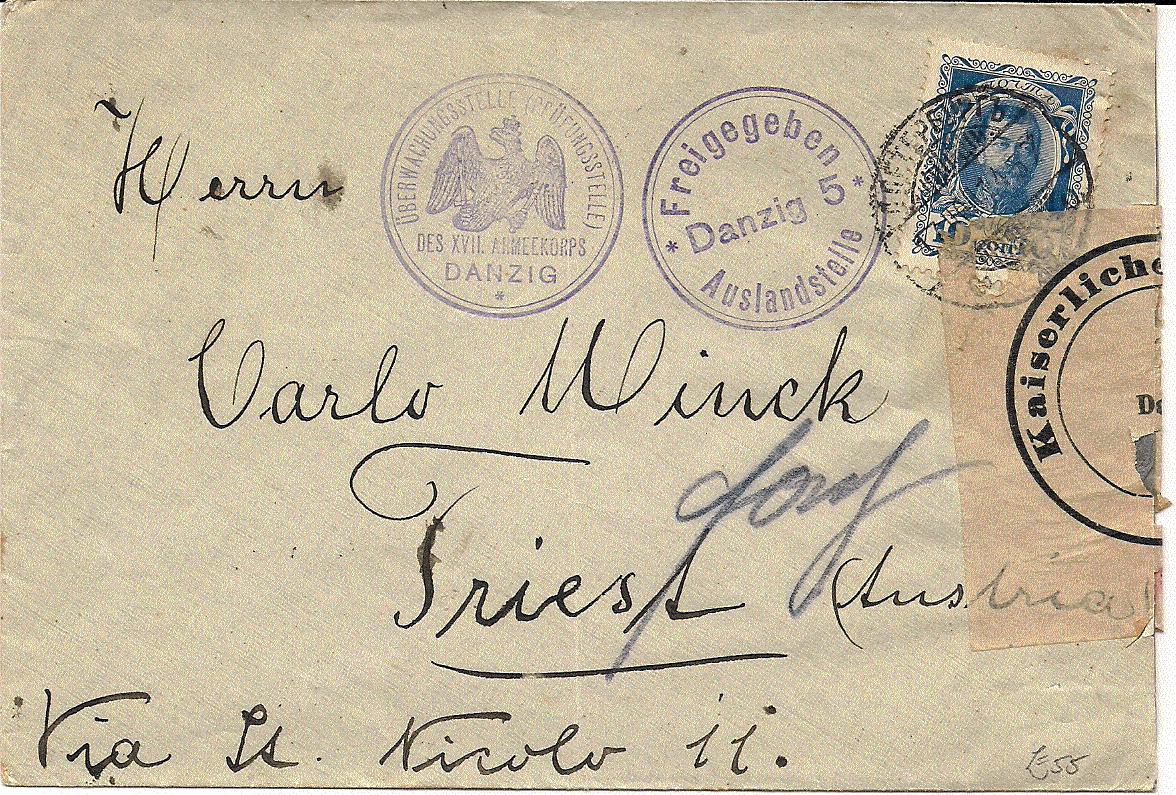 ÜBERWACHUNGSSTELLE (PRÜFUNGSSTELLE)
DES XVII. ARMEEKORPS
DANZIG
*
* Freigegeben *
Danzig 5
Auslandstelle
ПОЧТА
10
Kaiserliche
Herrn
Carlo Minck
Triest (Austria)
Via St. Nicolo 11.
£55